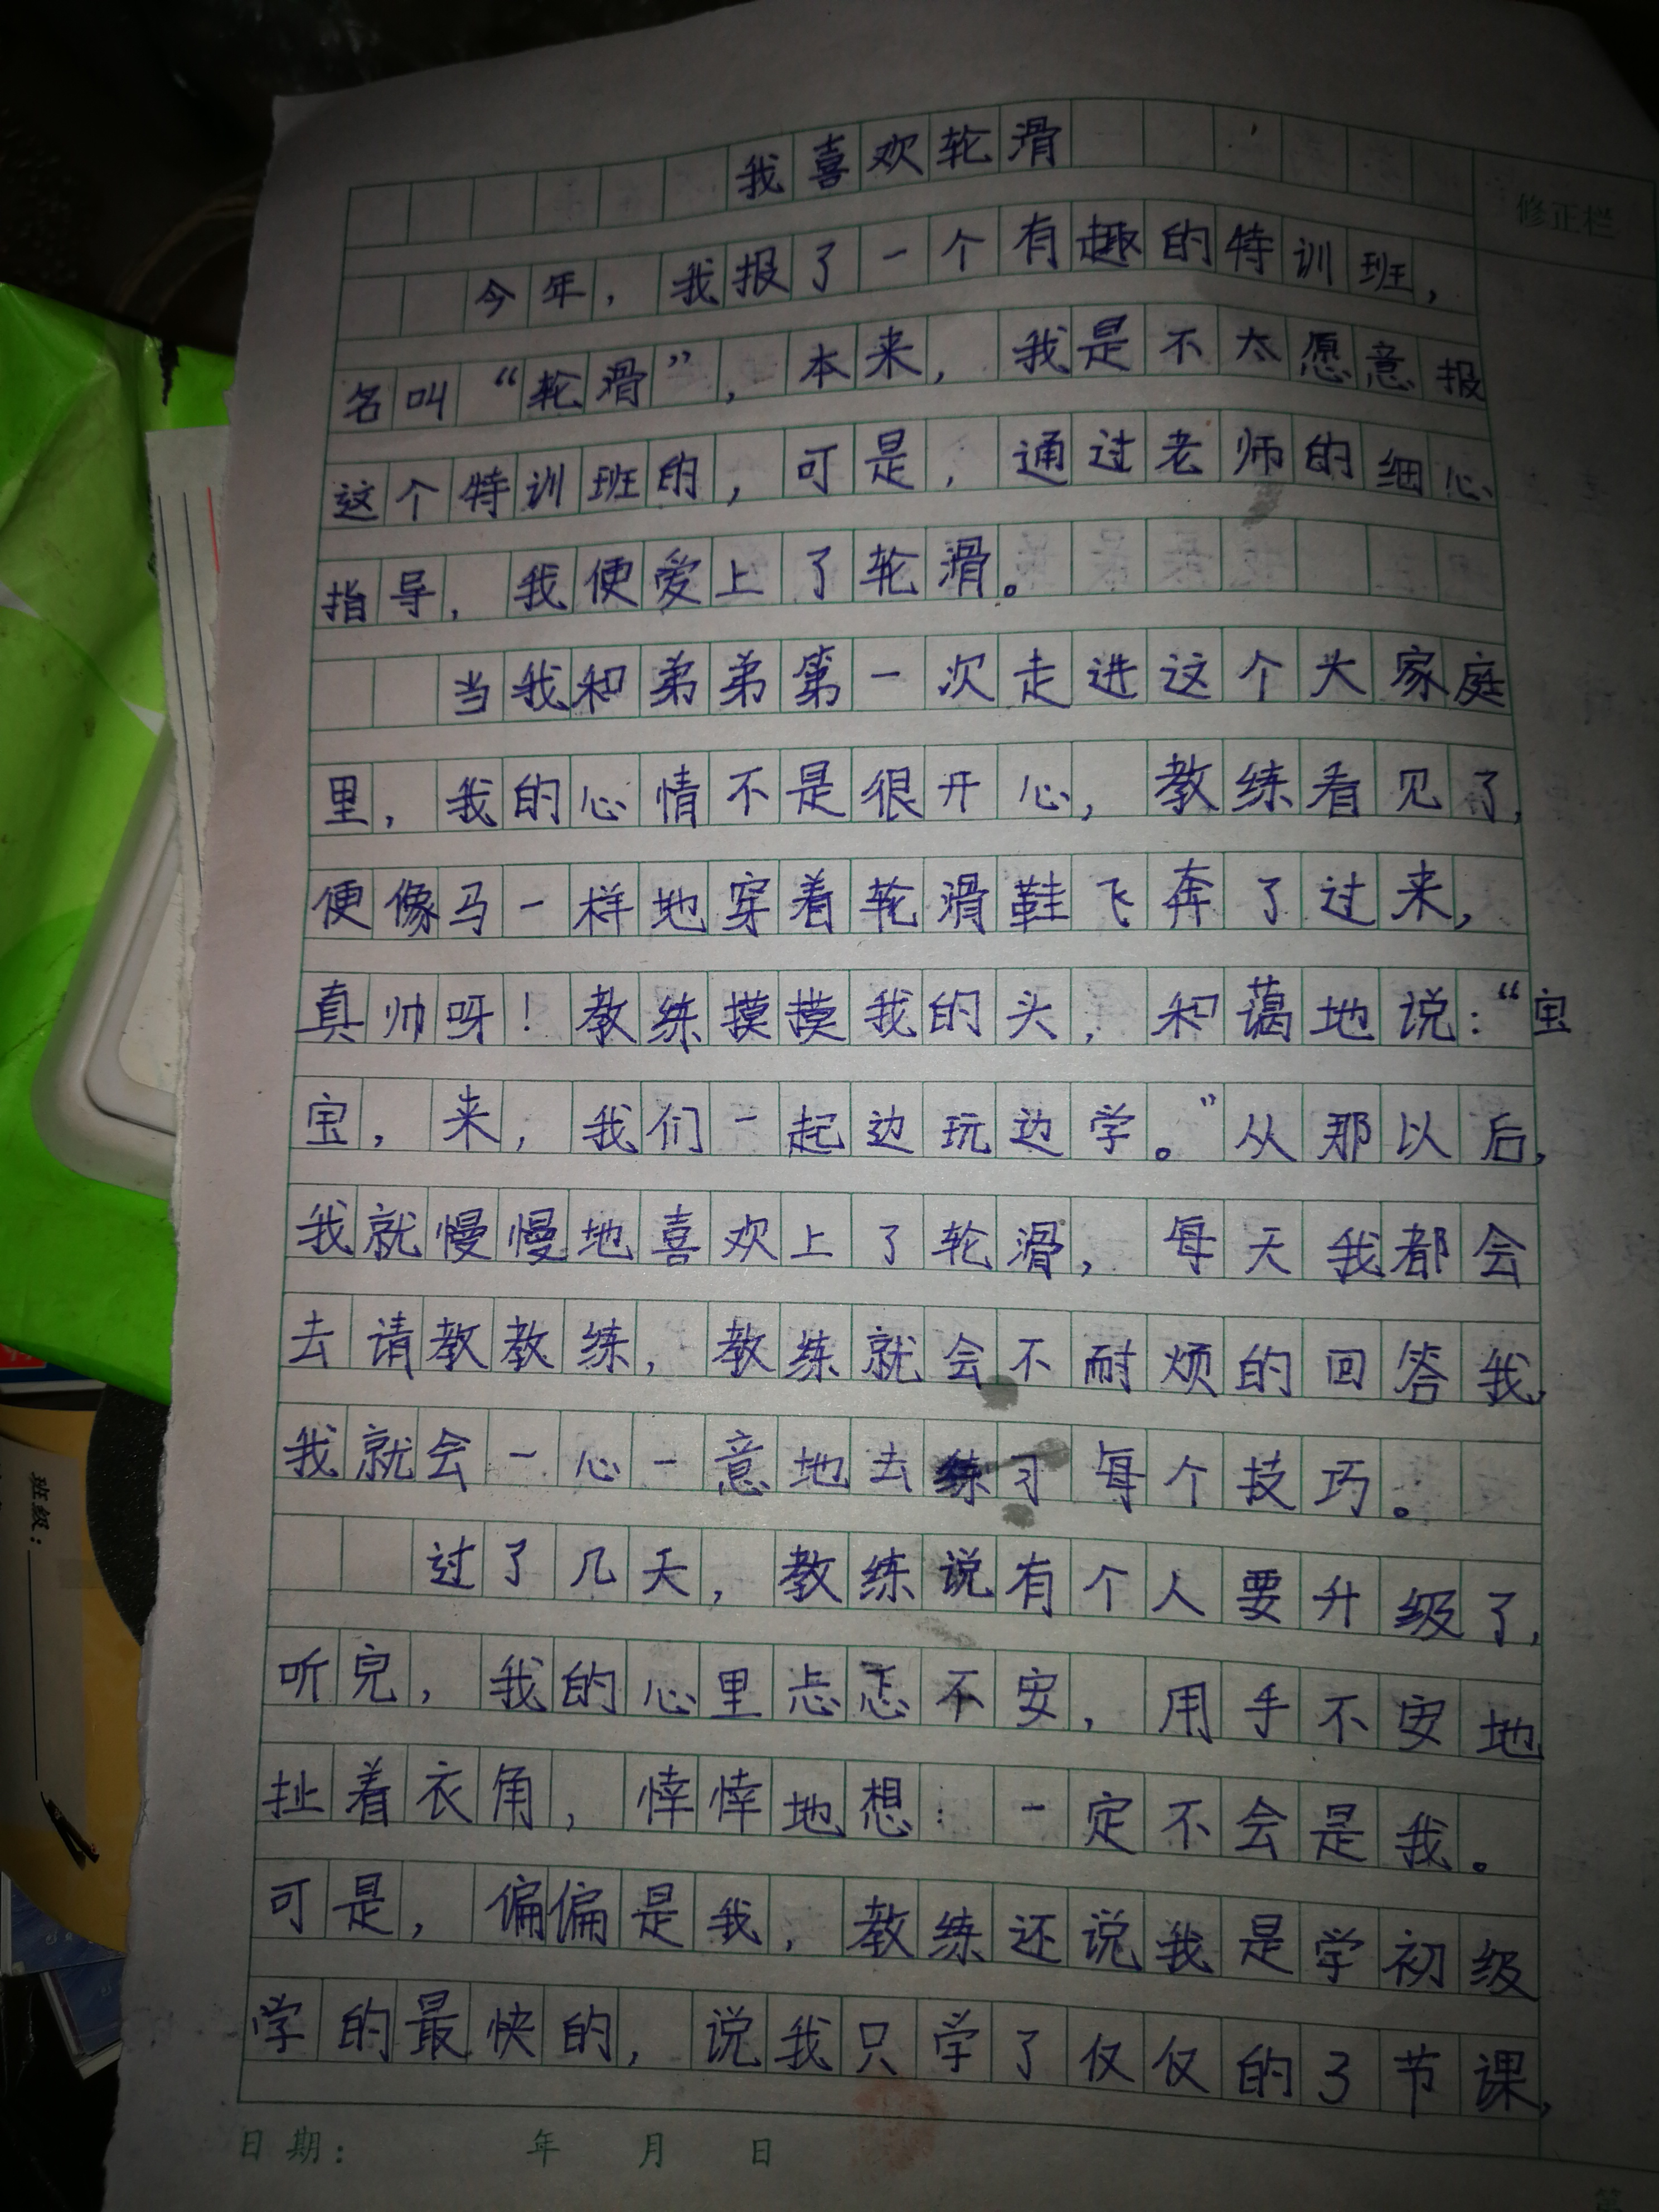 我喜欢轮滑
修正栏
今年，我报了一个有趣的特训班，
名叫“轮滑”，本来，我是不太愿意报
这个特训班的，可是，通过老师的细心
指导，我便爱上了轮滑。
当我和弟弟第一次走进这个大家庭
里，我的心情不是很开心，教练看见了，
便像马一样地穿着轮滑鞋飞奔了过来，
真帅呀！教练摸摸我的头，和蔼地说：“宝
宝，来，我们一起边玩边学。”从那以后，
我就慢慢地喜欢上了轮滑，每天我都会
去请教教练，教练就会不耐烦的回答我，
我就会一心一意地去练习每个技巧。
过了几天，教练说有个人要升级了，
听完，我的心里忐忑不安，用手不安地
扯着衣角，悻悻地想：一定不会是我。
可是，偏偏是我，教练还说我是学初级
学的最快的，说我只学了仅仅的3节课，
日期： 年 月 日
班级：